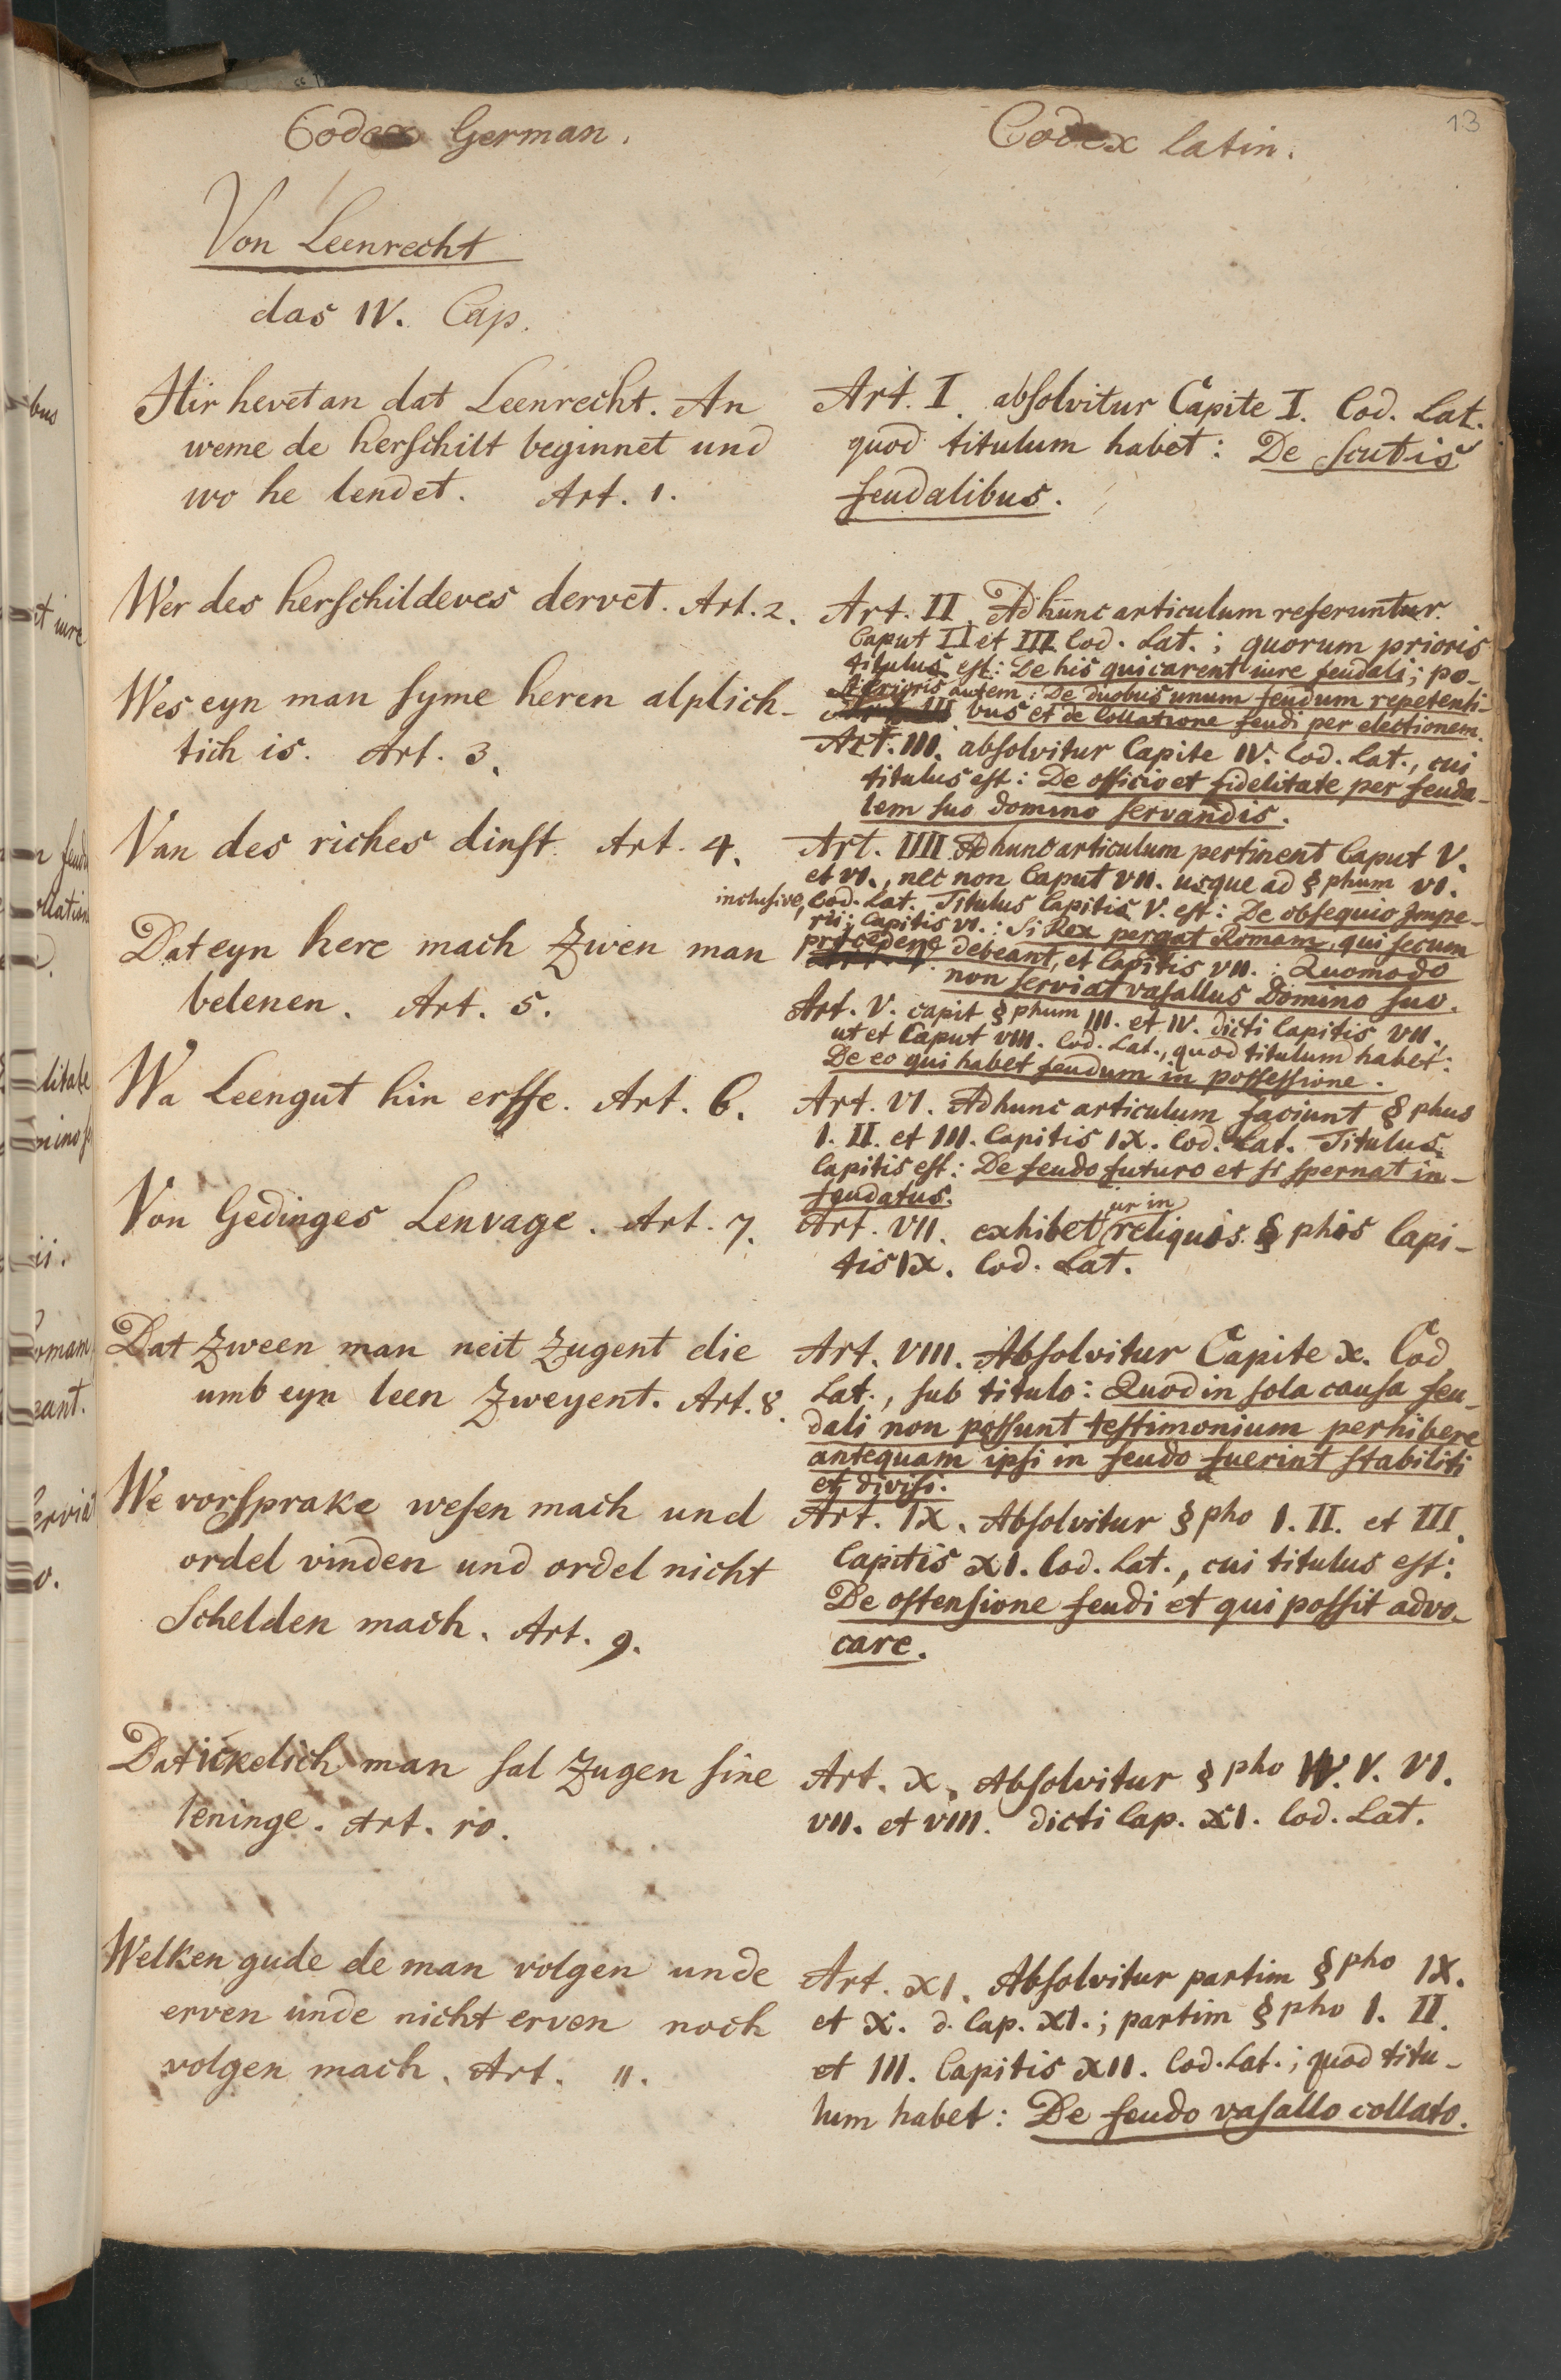 13
Codex German.
Von Leenrecht
das IV. Cap.
Hir hevet an dat Leenrecht. An
weme de herschilt beginnet und
wo he lendet. Art. 1.
Wer des herschildeves dervet. Art. 2.
Wes eyn man syme heren alplich-
tich is. Art. 3.
Van des riches dinst Art. 4.
Dat eyn here mach Zwen man
belenen. Art. 5.
Wa Leengut hin erffe. Art. 6.
Von Gedinges Lenvage. Art. 7.
Dat Zween man neit Zugent die
umb eyn leen Zweyent. Art. 8.
We vorsprake wesen mach und
ordel vinden und ordel nicht
Schelden mach. Art. 9.
Dat ickelich man sal Zugen sine
leninge. Art. 10.
Welken gude de man volgen unde
erven unde nicht erven noch
volgen mach. Art. 11.
Codex latin.
Art. I. absolvitur Capite I. Cod. Lat.
quod titulum habet: De scutis
feudalibus.
Art. II. Ad hunc articulum referuntur
Caput II et III Cod. Lat.; quorum prioris
titulus est: De his qui carent iure feudali; po-
sterioris autem: De duobus unum feudum repetenti-
bus et de Collatione feudi per electionem.
Art. III. absolvitur Capite IV. Cod. Lat., cui
titulus est: De officio et fidelitate per feuda-
lem suo domino servandis.
Art. IIII Ad hunc articulum pertinent Caput V.
et VI., nec non Caput VII. usque ad § phum VI.
inclusive, Cod. Lat. Titulus Capitis V. est: De obsequio Impe-
rii; Capitis VI.: Si Rex pergat Romam, qui secum
procedere debeant, et Capitis VII.: Quomodo
non serviat vasallus Domino suo.
Art. V. capit § phum III. et IV. dicti Capitis VII.,
ut et Caput VIII. Cod. Lat., quod titulum habet:
De eo qui habet feudum in possessione.
Art. VI. Ad hunc articulum faciunt § phus
I. II. et III. Capitis IX. Cod. Lat. Titulus
Capitis est: De feudo futuro et si spernat in-
feudatus.
ur in
Art. VII. exhibet reliquis § phis Capi-
tis IX. Cod. Lat.
Art. VIII. Absolvitur Capite X. Cod
Lat., sub titulo: Quod in sola causa feu-
dali non possunt testimonium perhibere
antequam ipsi in feudo fuerint stabiliti
et divisi.
Art. IX. Absolvitur § pho I. II. et III.
Capitis XI. Cod. Lat., cui titulus est:
De ostensione feudi et qui possit advo-
care.
Art. X. Absolvitur § pho IV. V. VI.
VII. et VIII. dicti Cap. XI. Cod. Lat.
Art. XI. Absolvitur partim § pho IX.
et X. d. Cap. XI.; partim § pho I. II.
et III. Capitis XII. Cod. Lat.; quod titu-
lum habet: De feudo vasallo collato.